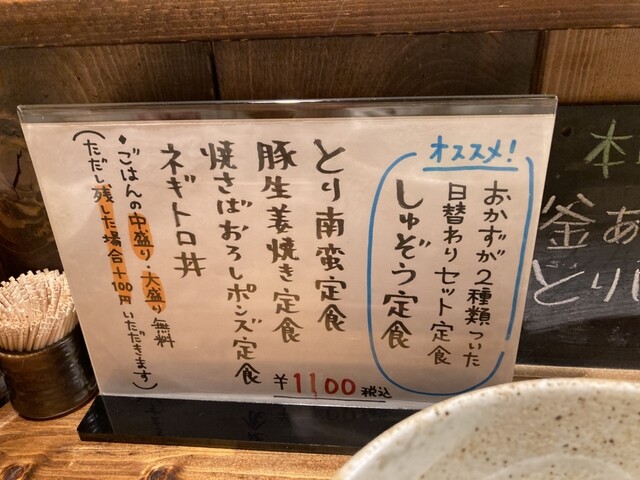 オススメ!
おかずが2種類ついた
日替わりセット定食
しゅぞう定食
とり南蛮定食
豚生姜焼き定食
焼さばおろしポンズ定食
ネギトロ丼
¥1100税込
◆ごはんの中盛り・大盛り無料
(ただし残した場合+100円いただきます)
本
釜あ
どり